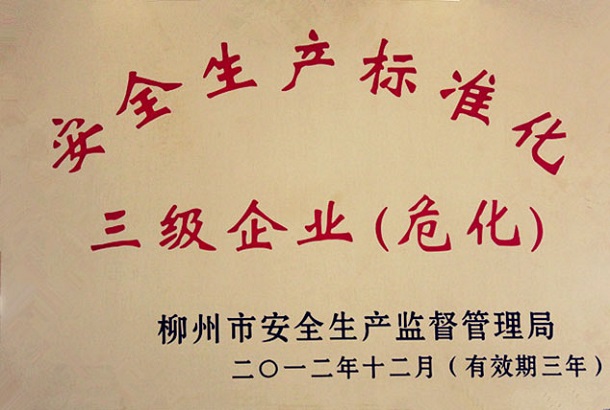 安全生产标准化
三级企业(危化)
柳州市安全生产监督管理局
二〇一二年十二月(有效期三年)